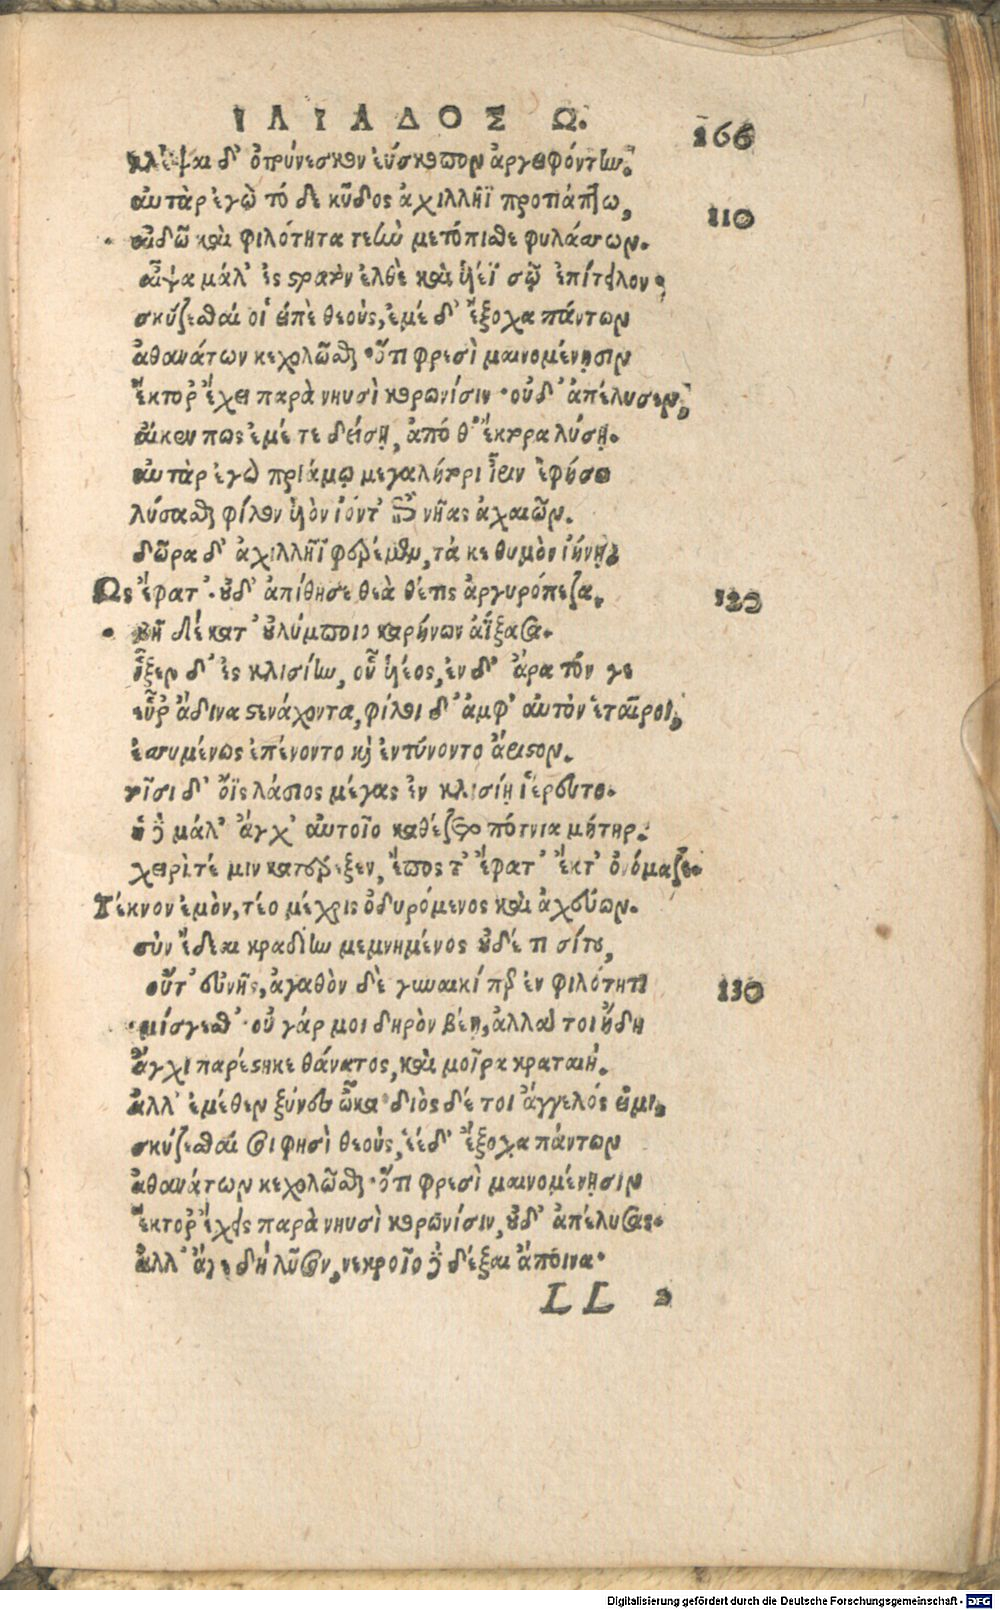 ΙΛΙΑΔΟΣ Ω.
266
κλέψαι δ' ὀτρύνεσκεν ἐύσκοπον ἀργειφόντην.
αὐτὰρ ἐγὼ τό δε κῦδος ἀχιλλῆϊ προτιάπτω,
110
αἰδῶ καὶ φιλότητα τεὴν μετόπισθε φυλάσσων.
αἶψα μάλ' ἐς στρατὸν ἐλθὲ καὶ ὑιέϊ σῷ ἐπίτειλον,
σκύζεσθαί οἱ εἰπὲ θεοὺς, ἐμέ δ' ἔξοχα πάντων
ἀθανάτων κεχολῶσθαι· ὅτι φρεσὶ μαινομένῃσιν
ἕκτορ' ἔχει παρὰ νηυσὶ κορωνίσιν· οὐδ' ἀπέλυσεν,
αἴκεν πως ἐμέ τε δείσῃ, ἀπό θ' ἕκτορα λύσῃ.
αὐτὰρ ἐγὼ πριάμῳ μεγαλήτορι ἶριν ἐφήσω
λύσασθαι φίλον ὑιὸν ἰόντ' ἐπὶ νῆας ἀχαιῶν.
δῶρα δ' ἀχιλλῆϊ φερέμεν, τά κε θυμὸν ἰήνῃ.
Ως ἔφατ'· οὐδ' ἀπίθησε θεὰ θέτις ἀργυρόπεζα.
120
βῆ δὲ κατ' οὐλύμποιο καρήνων ἀΐξασα.
ἷξεν δ' ἐς κλισίην, οὗ ὑιέος, ἐν δ' ἄρα τόν γε
εὗρ' ἁδινα στενάχοντα, φίλοι δ' ἀμφ' αὐτὸν ἑταῖροι,
ἐσσυμένως ἐπένοντο καὶ ἐντύνοντο ἄριστον.
τοῖσι δ' ὄϊς λάσιος μέγας ἐν κλισίῃ ἱέρευτο.
ἡ δὲ μάλ' ἄγχ' αὐτοῖο καθέζετο πότνια μήτηρ.
χειρί τέ μιν κατέρεξεν, ἔπος τ' ἔφατ' ἔκτ' ὀνόμαζε.
Τέκνον ἐμὸν, τέο μέχρις ὀδυρόμενος καὶ ἀχεύων.
σὴν ἔδεαι κραδίην μεμνημένος οὐδέ τι σίτου,
οὔτ' εὐνῆς, ἀγαθὸν δὲ γυναικί περ ἐν φιλότητι
130
μίσγεσθ'· οὐ γάρ μοι δηρὸν βέῃ, ἀλλά τοι ἤδη
ἄγχι παρέστηκε θάνατος, καὶ μοῖρα κραταιή.
ἀλλ' ἐμέθεν ξύνες ὦκα· διὸς δέ τοι ἄγγελός εἰμι,
σκύζεσθαί σοι φησὶ θεοὺς, ἑὲ δ' ἔξοχα πάντων
ἀθανάτων κεχολῶσθαι· ὅτι φρεσὶ μαινομένῃσιν
ἕκτορ' ἔχεις παρὰ νηυσὶ κορωνίσιν, οὐδ' ἀπέλυσας.
ἀλλ' ἄγε δὴ λῦσον, νεκροῖο δὲ δέξαι ἄποινα·
LL 2
Digitalisierung gefördert durch die Deutsche Forschungsgemeinschaft - DFG